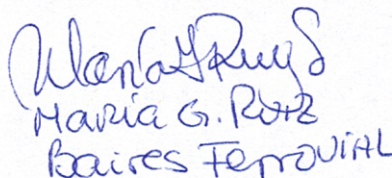 María G Ruiz
Maria G. Ruiz
Baires FerroviAL